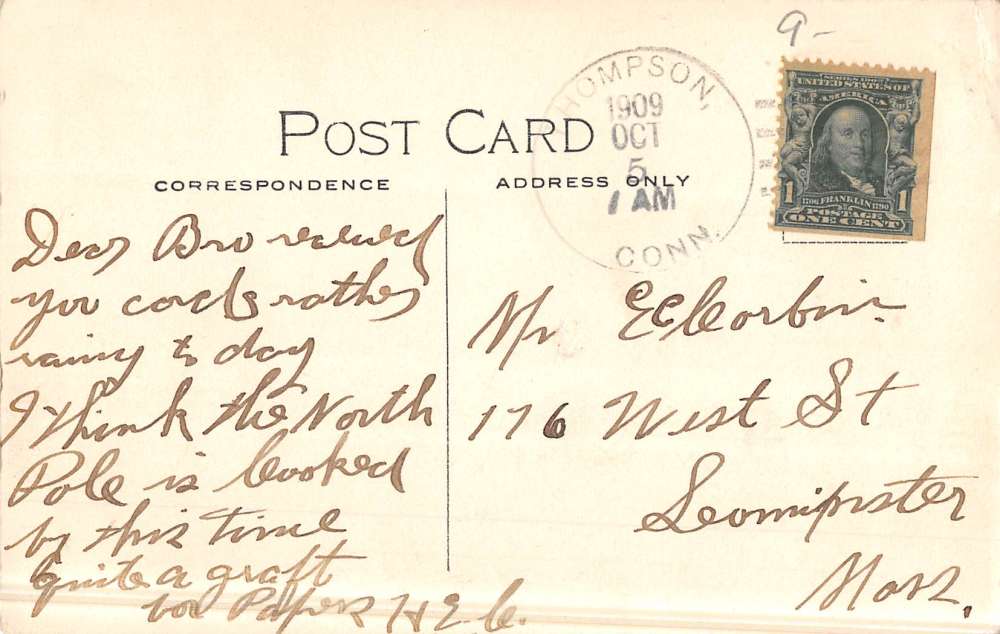 9-
POST CARD
CORRESPONDENCE
ADDRESS ONLY
THOMPSON,
1909
OCT
5
7 AM
CONN.
SERIES 1902
UNITED STATES OF
AMERICA
1 1
1706 FRANKLIN 1790
POSTAGE
ONE CENT
Dear Bro recieved
you cards rather
rainy to day
I think the North
Pole is Cooked
by this time
quite a graft
for Papers H E C.
Mr E C Corbin
176 West St
Leominster
Mass.